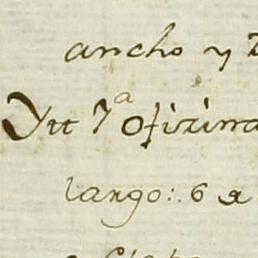 ancho y
Ytt 7ª ofizina
largo: 6